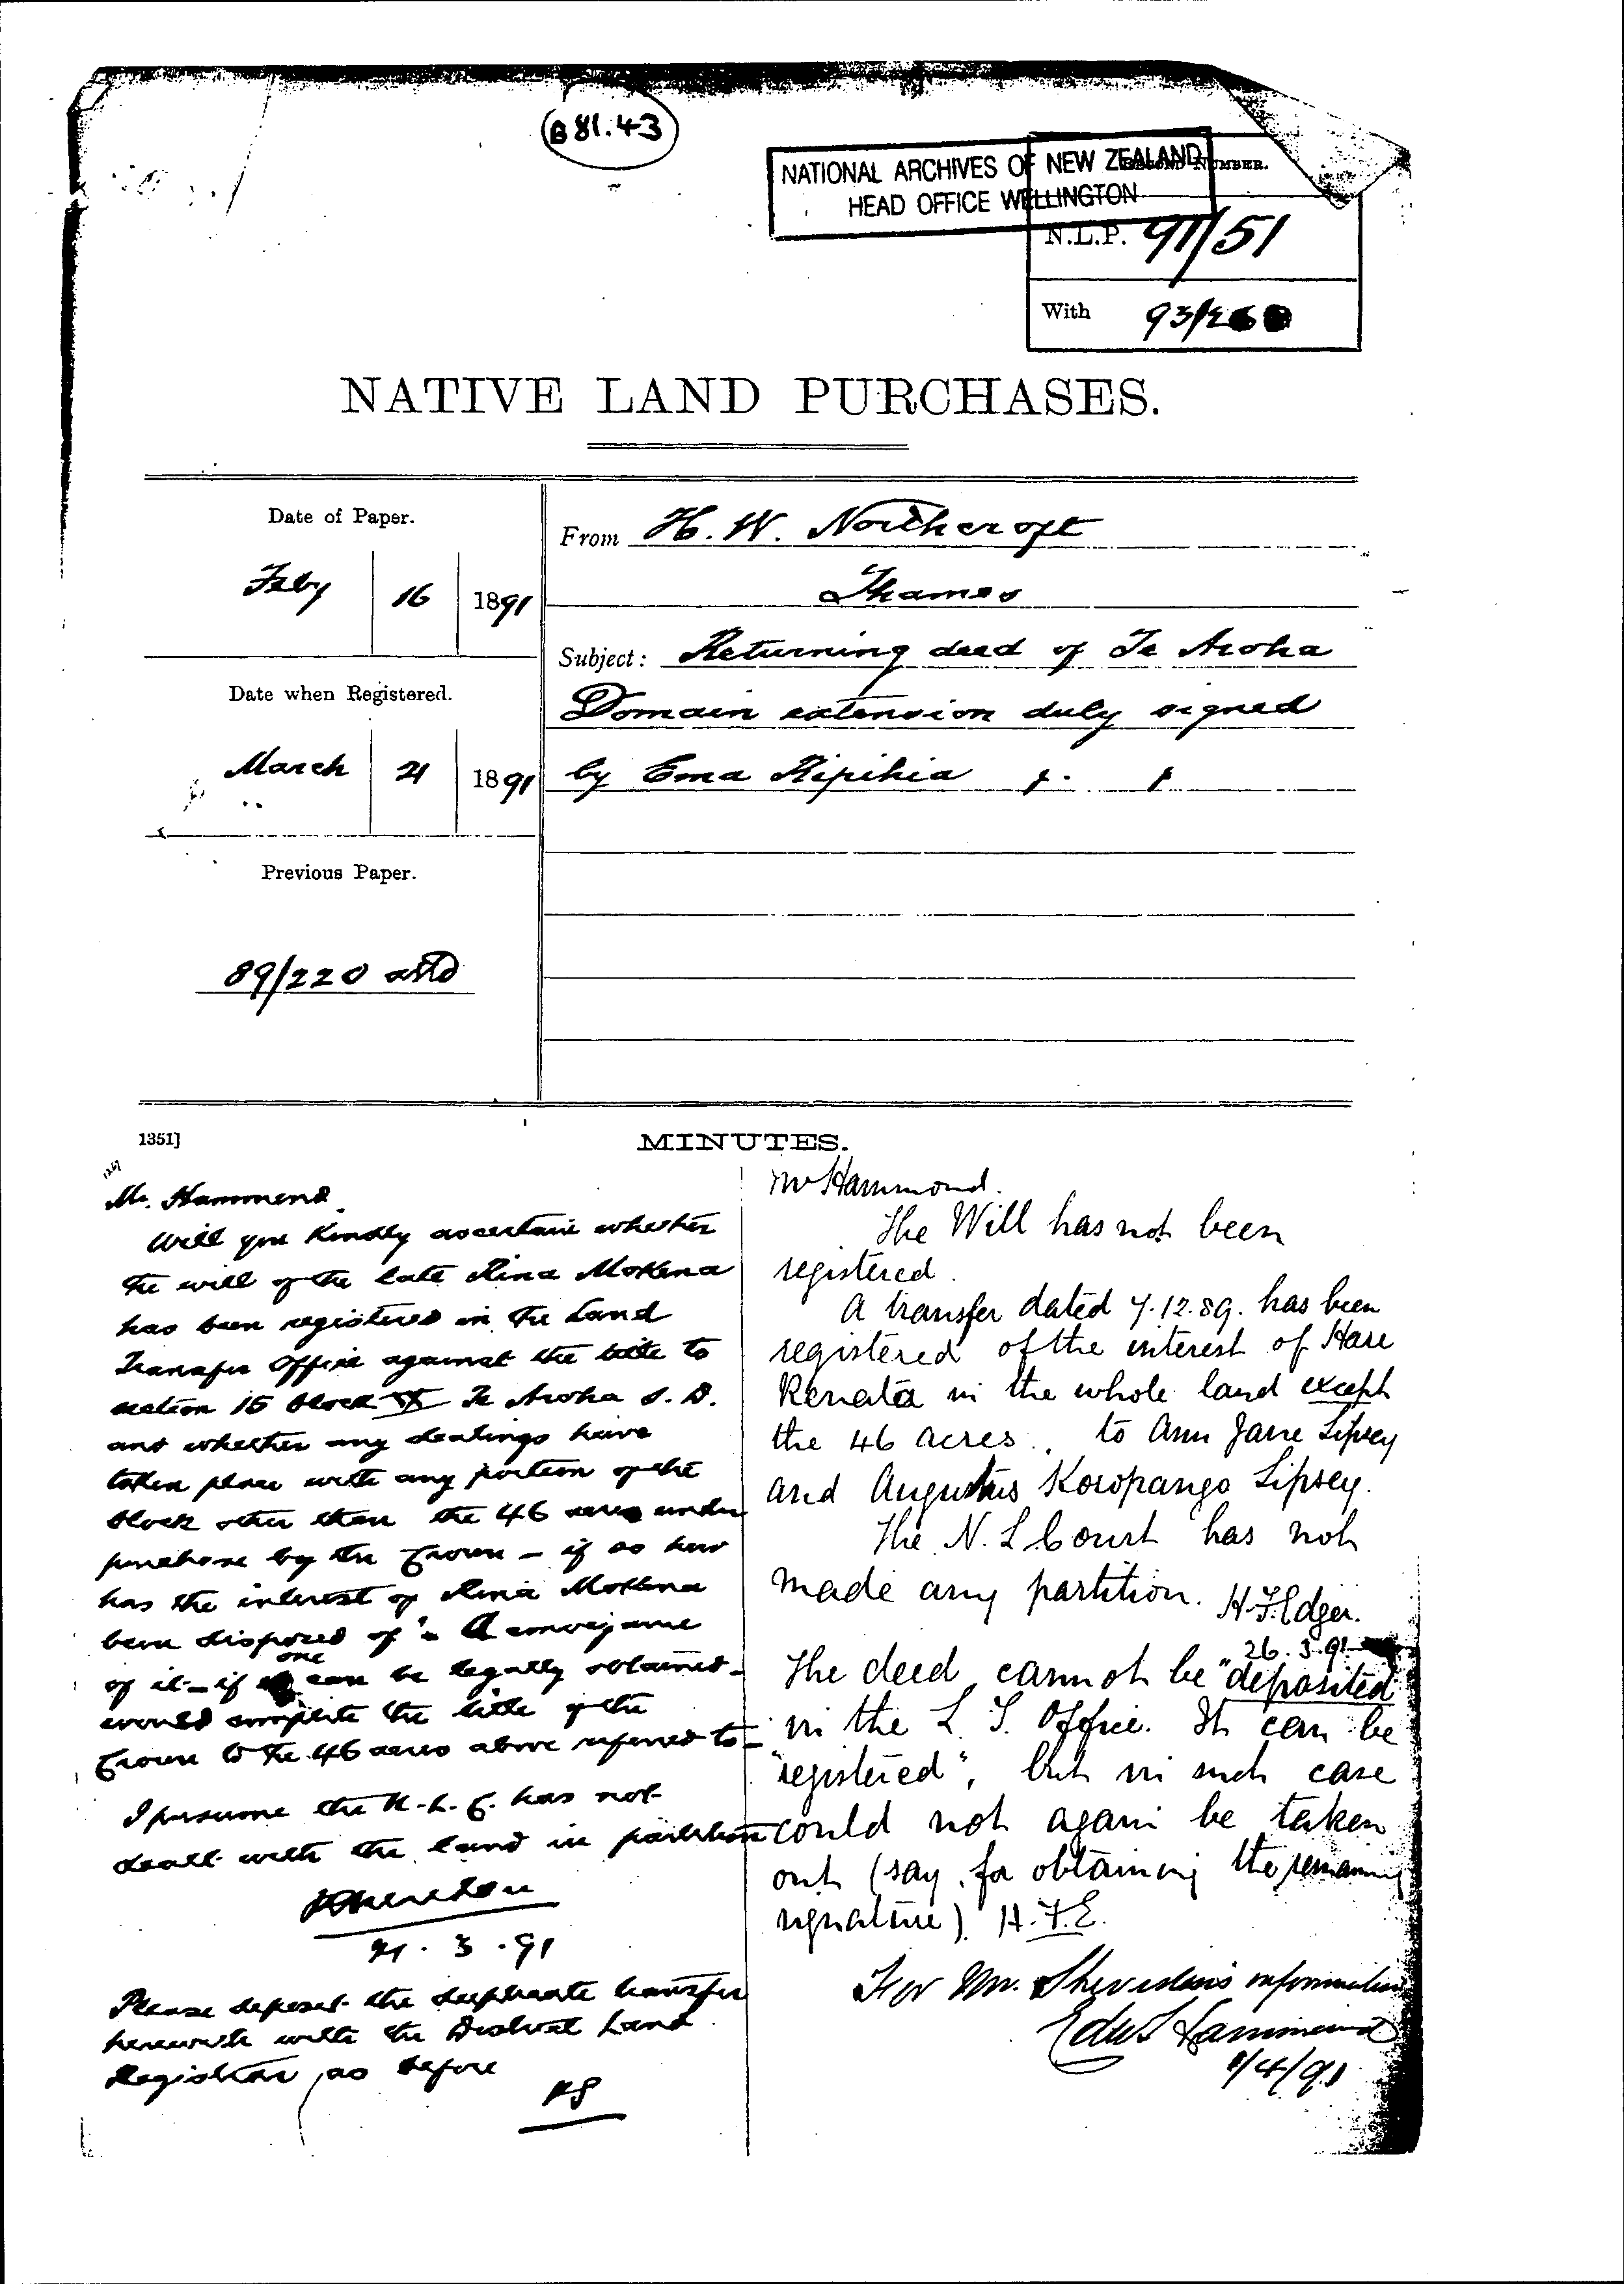 B 81.43
NATIONAL ARCHIVES OF NEW ZEALAND
HEAD OFFICE WELLINGTON
RECORD NUMBER.
N.L.P. 91/51
With 93/
NATIVE LAND PURCHASES.
Date of Paper.
Feby 16 1891
Date when Registered.
March 21 1891
Previous Paper.
89/220
From H. W. Northcroft
Thames
Subject: Returning deed of Te Aroha
Domain extension duly signed
by Ema Ripihia
1351]
MINUTES.
Mr. Hammond
Will you kindly ascertain whether
the will of the late Rina Mokena
has been registered in the Land
Transfer Office against the title to
section 15 block Te Aroha S. D.
and whether any dealings have
taken place with any portion of the
block other than the 46 acres under
purchase by the Crown - if so how
has the interest of Rina Mokena
been disposed of - A conveyance
of it - if one can be legally obtained -
would complete the title of the
Crown to the 46 acres above referred to -
I presume the N. L. C. has not
dealt with the land in partition
21 . 3 . 91
Please deposit the duplicate transfer
herewith with the District Land
Registrar, as before
PS
Mr Hammond.
The Will has not been
registered.
A transfer dated 7.12.89. has been
registered of the interest of Hare
Renata in the whole land except
the 46 acres, to Ann Jane Lipsey
and Augustus Koropango Lipsey.
The N. L Court has not
made any partition. H.F.Edger.
26.3.91
The deed cannot be "deposited"
in the L. T. Office. It can be
"registered", but in such case
could not again be taken
out (say, for obtaining the remaining
signature) H.F.E.
For Mr. Sheridan's information
Edw Hammond
1/4/91